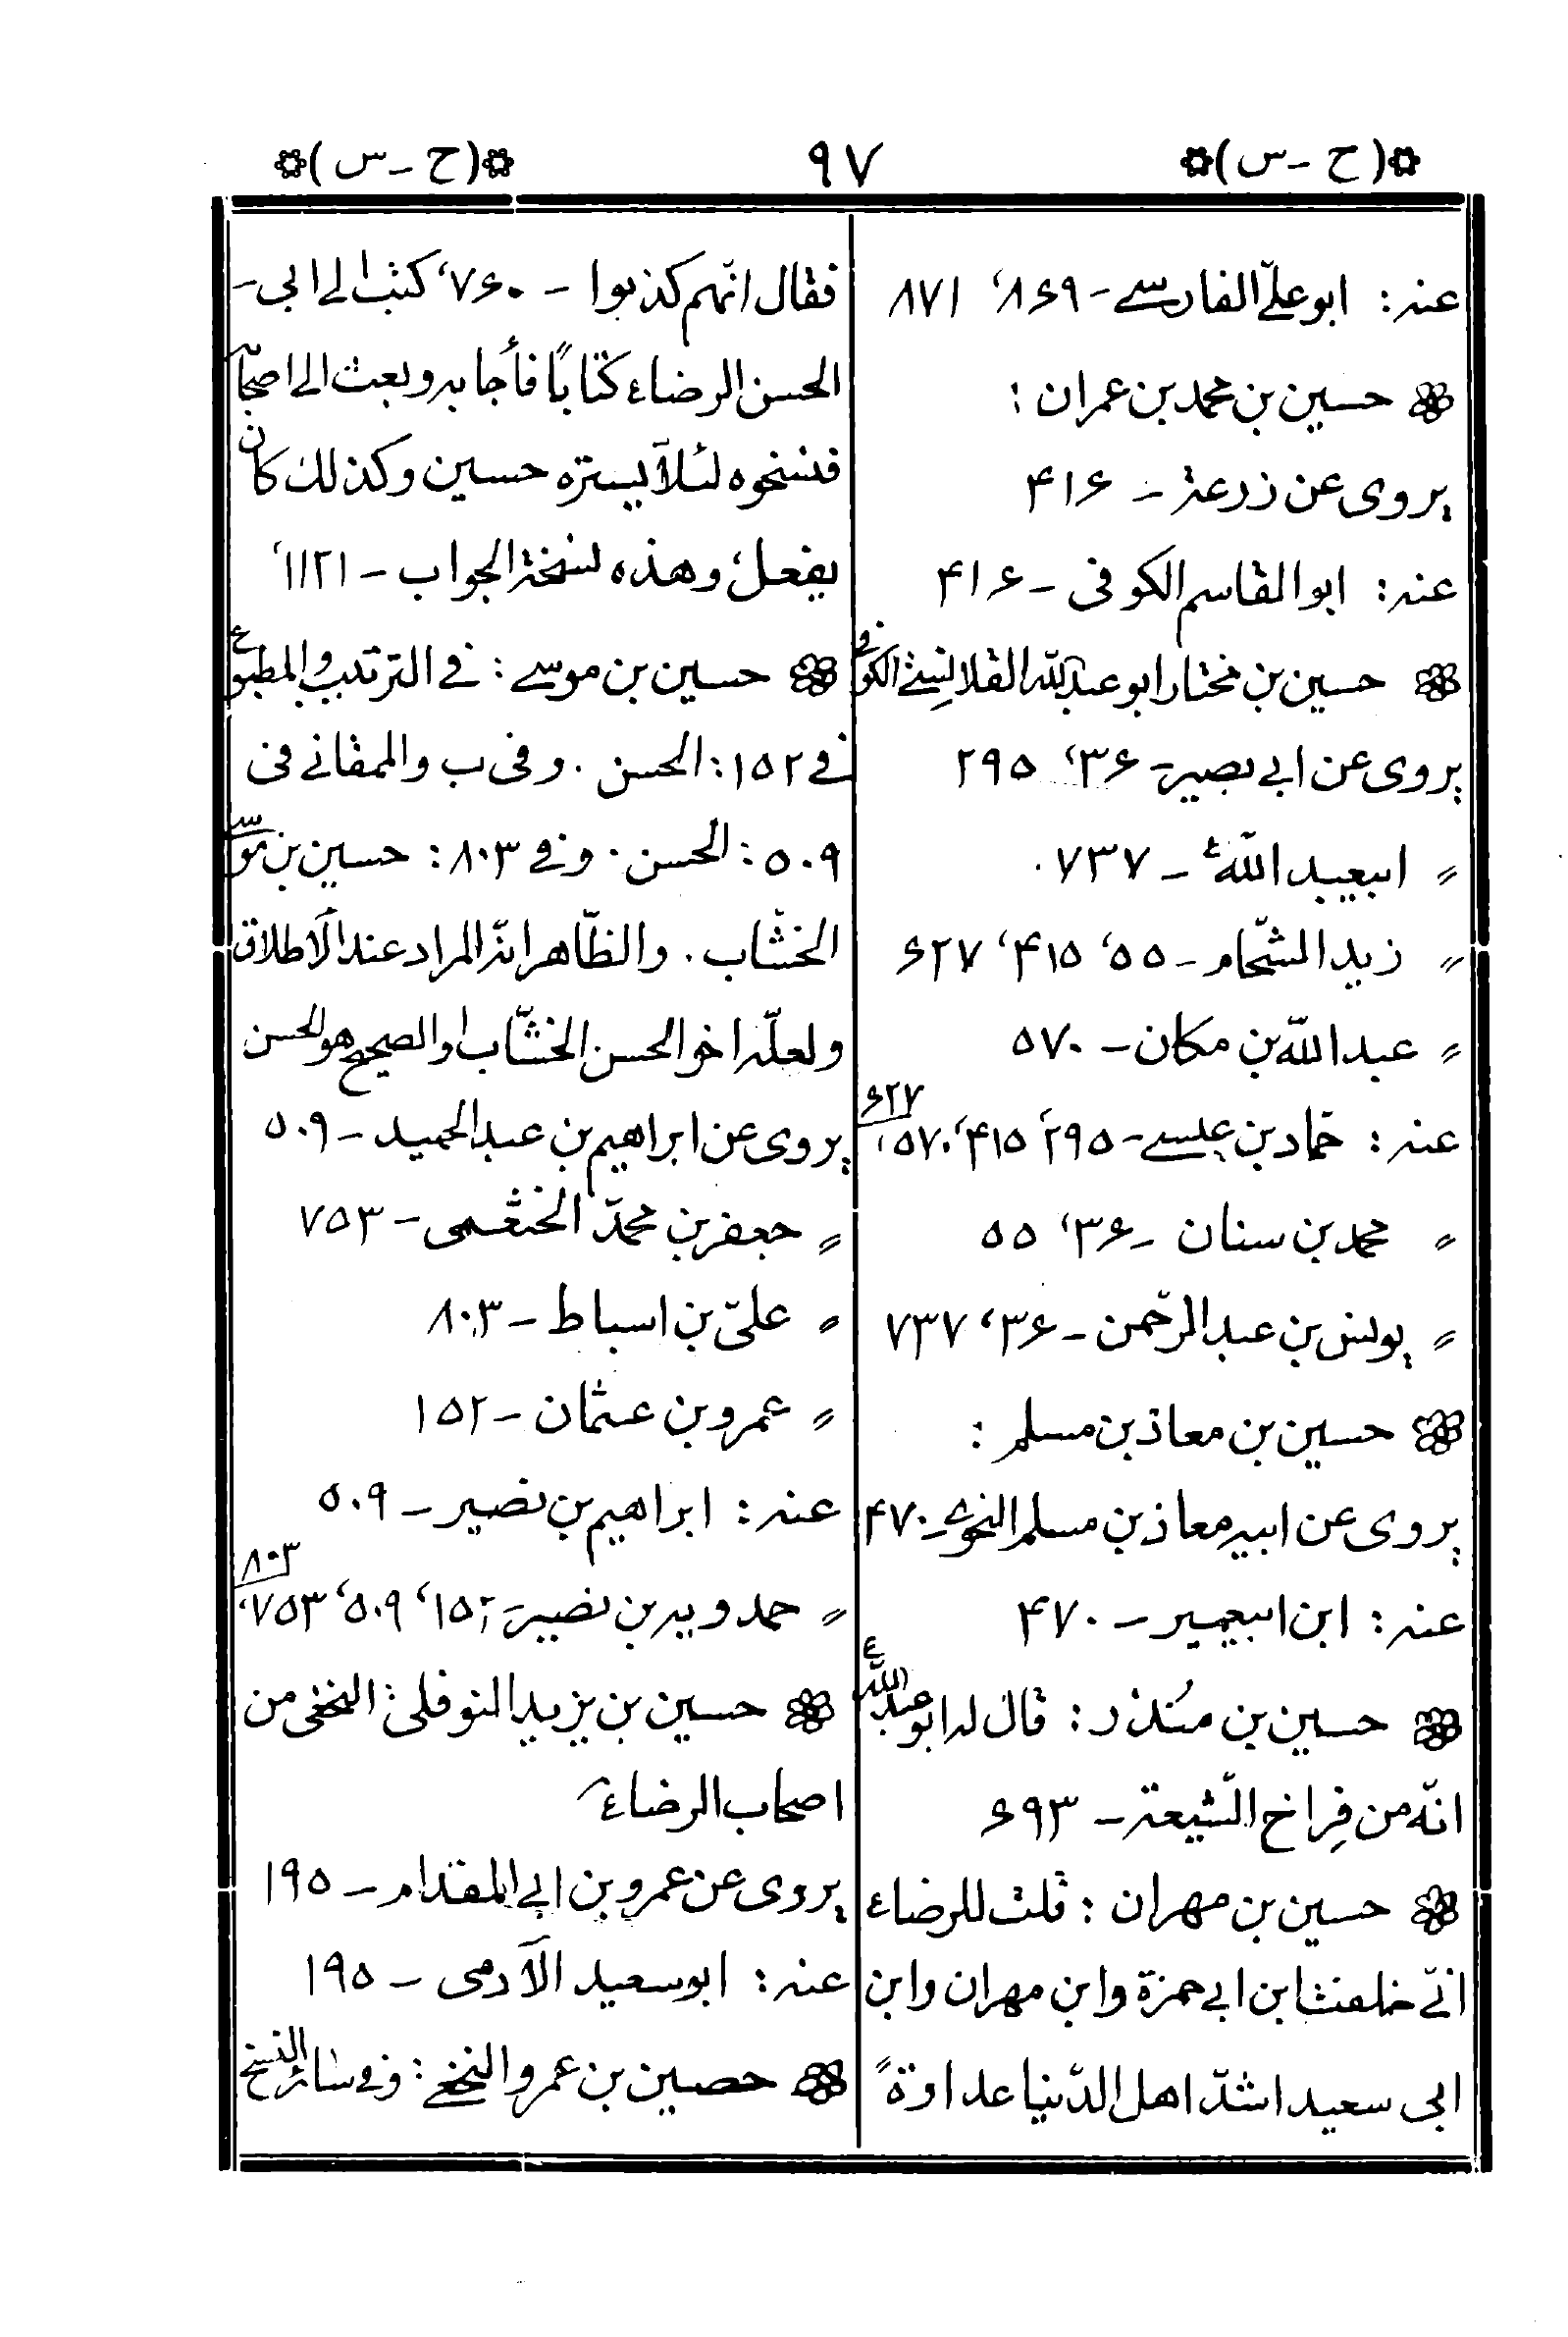 (ح - س)
٩٧
(ح - س)
عنه: ابو علىّ الفارسى - ٨۶٩، ٨٧١
حسين بن محمد بن عمران:
يروى عن زرعة - ۴١۶
عنه: ابو القاسم الكوفى - ۴١۶
حسين بن مختار ابو عبد اللّه القلانسىّ الكوفى
يروى عن ابى بصير - ٣۶، ٢٩۵
〃 ابيعبد اللّه ع - ٧٣٧.
〃 زيد الشّحّام - ۵۵، ۴١۵، ۶٢٧
〃 عبد اللّه بن مكان - ۵٧٠
عنه: حمّاد بن عيسى - ٢٩۵، ۴١۵، ۵٧٠، ۶٢٧
〃 محمد بن سنان - ٣۶، ۵۵
〃 يونس بن عبد الرّحمن - ٣۶، ٧٣٧
حسين بن معاذ بن مسلم:
يروى عن ابيه معاذ بن مسلم النحوى - ۴٧٠
عنه: ابن ابيعمير - ۴٧٠
حسين بن مُنذر: قال له ابو عبد اللّه ع
انّه من فِراخ الشّيعة - ۶٩٣
حسين بن مهران: قلت للرضا ع
انّى خلفت ابن ابى حمزة وابن مهران وابن
ابى سعيد اشدّ اهل الدّنيا عداوةً
فقال انّهم كذبوا - ٧۶٠، كتب الى ابى-
الحسن الرضا ع كتابًا فأجابه وبعث الى اصحابه
فنسخوه لئلّا يستره حسين وكذلك كان
يفعل، وهذه نسخة الجواب - ١١٢١،
حسين بن موسى: فى الترتيب والمطبوع
فى ١۵٢: الحسن. وفى ب والممقانى فى
۵٠٩: الحسن. وفى ٨٠٣: حسين بن موسى
الخشّاب. والظّاهر انّه المراد عند الأطلاق
ولعلّه اخو الحسن الخشّاب او الصحيح هو الحسن
يروى عن ابراهيم بن عبد الحميد - ۵٠٩
〃 جعفر بن محمّد الخثعمى - ٧۵٣
〃 علىّ بن اسباط - ٨٠٣
〃 عمرو بن عثمان - ١۵٢
عنه: ابراهيم بن نصير - ۵٠٩
〃 حمدويه بن نصير - ١۵٢، ۵٠٩، ٧۵٣، ٨٠٣
حسين بن يزيد النوفلى: النخعى من
اصحاب الرضا ع
يروى عن عمرو بن ابى المقدام - ١٩۵
عنه: ابو سعيد الآدمى - ١٩۵
حصين بن عمرو النخعى: وفى سائر النسخ